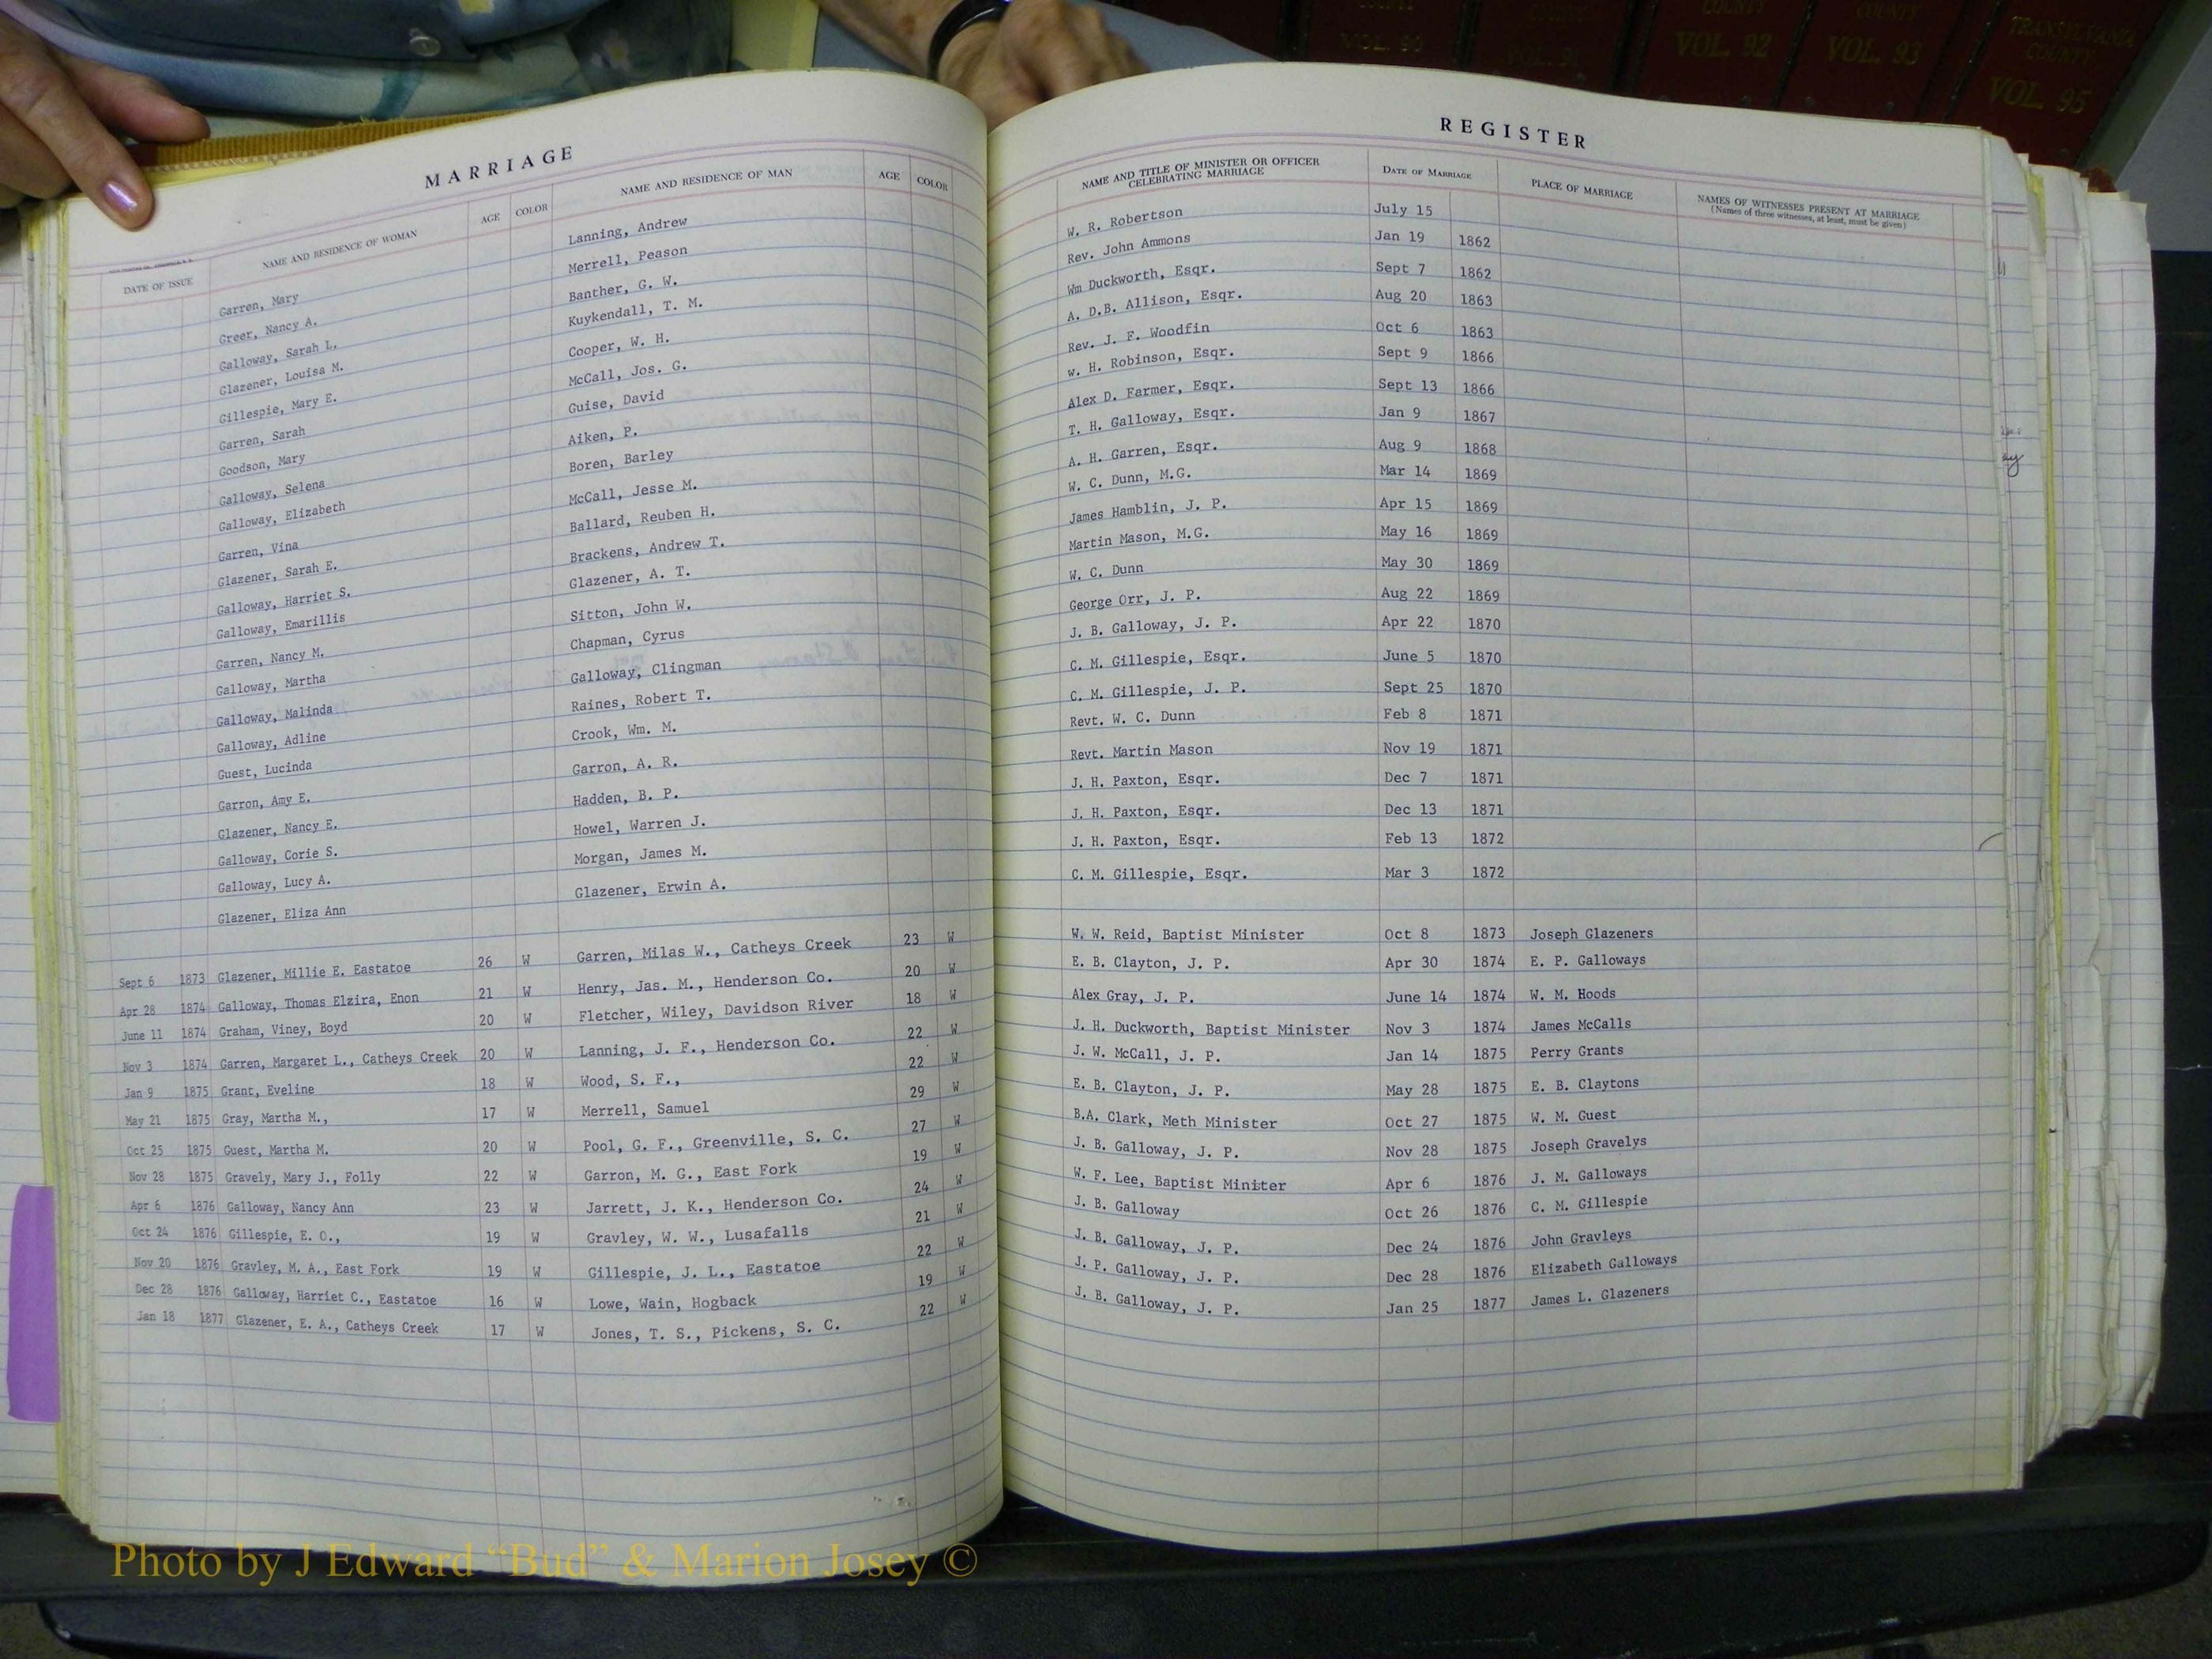 COUNTY
VOL. 90
COUNTY
VOL. 92
COUNTY
VOL. 93
TRANSYLVANIA
COUNTY
VOL. 95
MARRIAGE
DATE OF ISSUE NAME AND RESIDENCE OF WOMAN AGE COLOR NAME AND RESIDENCE OF MAN AGE COLOR
Garren, Mary Lanning, Andrew
Greer, Nancy A. Merrell, Peason
Galloway, Sarah L. Banther, G. W.
Glazener, Louisa M. Kuykendall, T. M.
Gillespie, Mary E. Cooper, W. H.
Garren, Sarah McCall, Jos. G.
Goodson, Mary Guise, David
Galloway, Selena Aiken, P.
Galloway, Elizabeth Boren, Barley
Garren, Vina McCall, Jesse M.
Glazener, Sarah E. Ballard, Reuben H.
Galloway, Harriet S. Brackens, Andrew T.
Galloway, Emarillis Glazener, A. T.
Garren, Nancy M. Sitton, John W.
Galloway, Martha Chapman, Cyrus
Galloway, Malinda Galloway, Clingman
Galloway, Adline Raines, Robert T.
Guest, Lucinda Crook, Wm. M.
Garron, Amy E. Garron, A. R.
Glazener, Nancy E. Hadden, B. P.
Galloway, Corie S. Howel, Warren J.
Galloway, Lucy A. Morgan, James M.
Glazener, Eliza Ann Glazener, Erwin A.
Sept 6 1873 Glazener, Millie E. Eastatoe 26 W Garren, Milas W., Catheys Creek 23 W
Apr 28 1874 Galloway, Thomas Elzira, Enon 21 W Henry, Jas. M., Henderson Co. 20 W
June 11 1874 Graham, Viney, Boyd 20 W Fletcher, Wiley, Davidson River 18 W
Nov 3 1874 Garren, Margaret L., Catheys Creek 20 W Lanning, J. F., Henderson Co. 22 W
Jan 9 1875 Grant, Eveline 18 W Wood, S. F., 22 W
May 21 1875 Gray, Martha M., 17 W Merrell, Samuel 29 W
Oct 25 1875 Guest, Martha M. 20 W Pool, G. F., Greenville, S. C. 27 W
Nov 28 1875 Gravely, Mary J., Folly 22 W Garron, M. G., East Fork 19 W
Apr 6 1876 Galloway, Nancy Ann 23 W Jarrett, J. K., Henderson Co. 24 W
Oct 24 1876 Gillespie, E. O., 19 W Gravley, W. W., Lusafalls 21 W
Nov 20 1876 Gravley, M. A., East Fork 19 W Gillespie, J. L., Eastatoe 22 W
Dec 28 1876 Galloway, Harriet C., Eastatoe 16 W Lowe, Wain, Hogback 19 W
Jan 18 1877 Glazener, E. A., Catheys Creek 17 W Jones, T. S., Pickens, S. C. 22 W
REGISTER
NAME AND TITLE OF MINISTER OR OFFICER CELEBRATING MARRIAGE DATE OF MARRIAGE PLACE OF MARRIAGE NAMES OF WITNESSES PRESENT AT MARRIAGE
(Names of three witnesses, at least, must be given)
W. R. Robertson July 15
Rev. John Ammons Jan 19 1862
Wm Duckworth, Esqr. Sept 7 1862
A. D.B. Allison, Esqr. Aug 20 1863
Rev. J. F. Woodfin Oct 6 1863
W. H. Robinson, Esqr. Sept 9 1866
Alex D. Farmer, Esqr. Sept 13 1866
T. H. Galloway, Esqr. Jan 9 1867
A. H. Garren, Esqr. Aug 9 1868
W. C. Dunn, M.G. Mar 14 1869
James Hamblin, J. P. Apr 15 1869
Martin Mason, M.G. May 16 1869
W. C. Dunn May 30 1869
George Orr, J. P. Aug 22 1869
J. B. Galloway, J. P. Apr 22 1870
C. M. Gillespie, Esqr. June 5 1870
C. M. Gillespie, J. P. Sept 25 1870
Revt. W. C. Dunn Feb 8 1871
Revt. Martin Mason Nov 19 1871
J. H. Paxton, Esqr. Dec 7 1871
J. H. Paxton, Esqr. Dec 13 1871
J. H. Paxton, Esqr. Feb 13 1872
C. M. Gillespie, Esqr. Mar 3 1872
W. W. Reid, Baptist Minister Oct 8 1873 Joseph Glazeners
E. B. Clayton, J. P. Apr 30 1874 E. P. Galloways
Alex Gray, J. P. June 14 1874 W. M. Hoods
J. H. Duckworth, Baptist Minister Nov 3 1874 James McCalls
J. W. McCall, J. P. Jan 14 1875 Perry Grants
E. B. Clayton, J. P. May 28 1875 E. B. Claytons
B.A. Clark, Meth Minister Oct 27 1875 W. M. Guest
J. B. Galloway, J. P. Nov 28 1875 Joseph Gravelys
W. F. Lee, Baptist Miniter Apr 6 1876 J. M. Galloways
J. B. Galloway Oct 26 1876 C. M. Gillespie
J. B. Galloway, J. P. Dec 24 1876 John Gravleys
J. P. Galloway, J. P. Dec 28 1876 Elizabeth Galloways
J. B. Galloway, J. P. Jan 25 1877 James L. Glazeners
Photo by J Edward “Bud” & Marion Josey ©